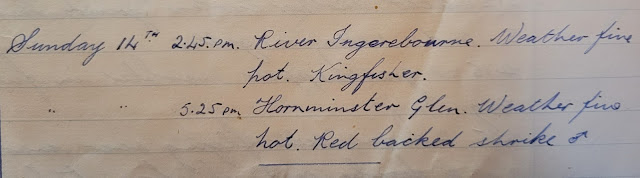 Sunday 14TH 2.45.pm. River Ingerebourne. Weather fine
hot. Kingfisher.
" " 5.25 pm. Hornminster Glen. Weather fine
hot. Red backed shrike ♂